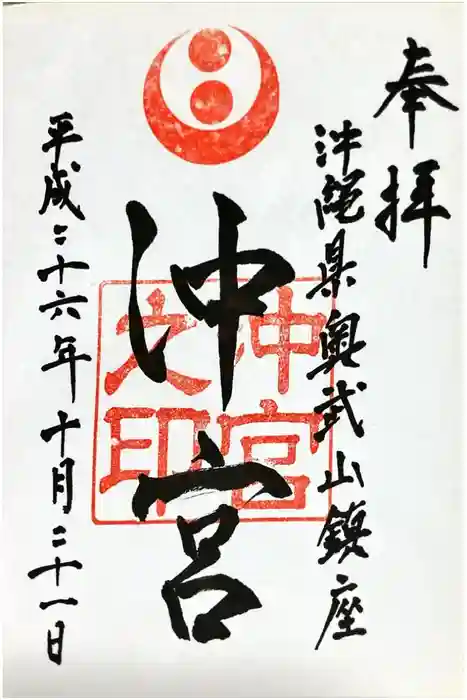 奉拝
沖縄県奥武山鎮座
沖宮
沖宮之印
平成二十六年十月二十一日